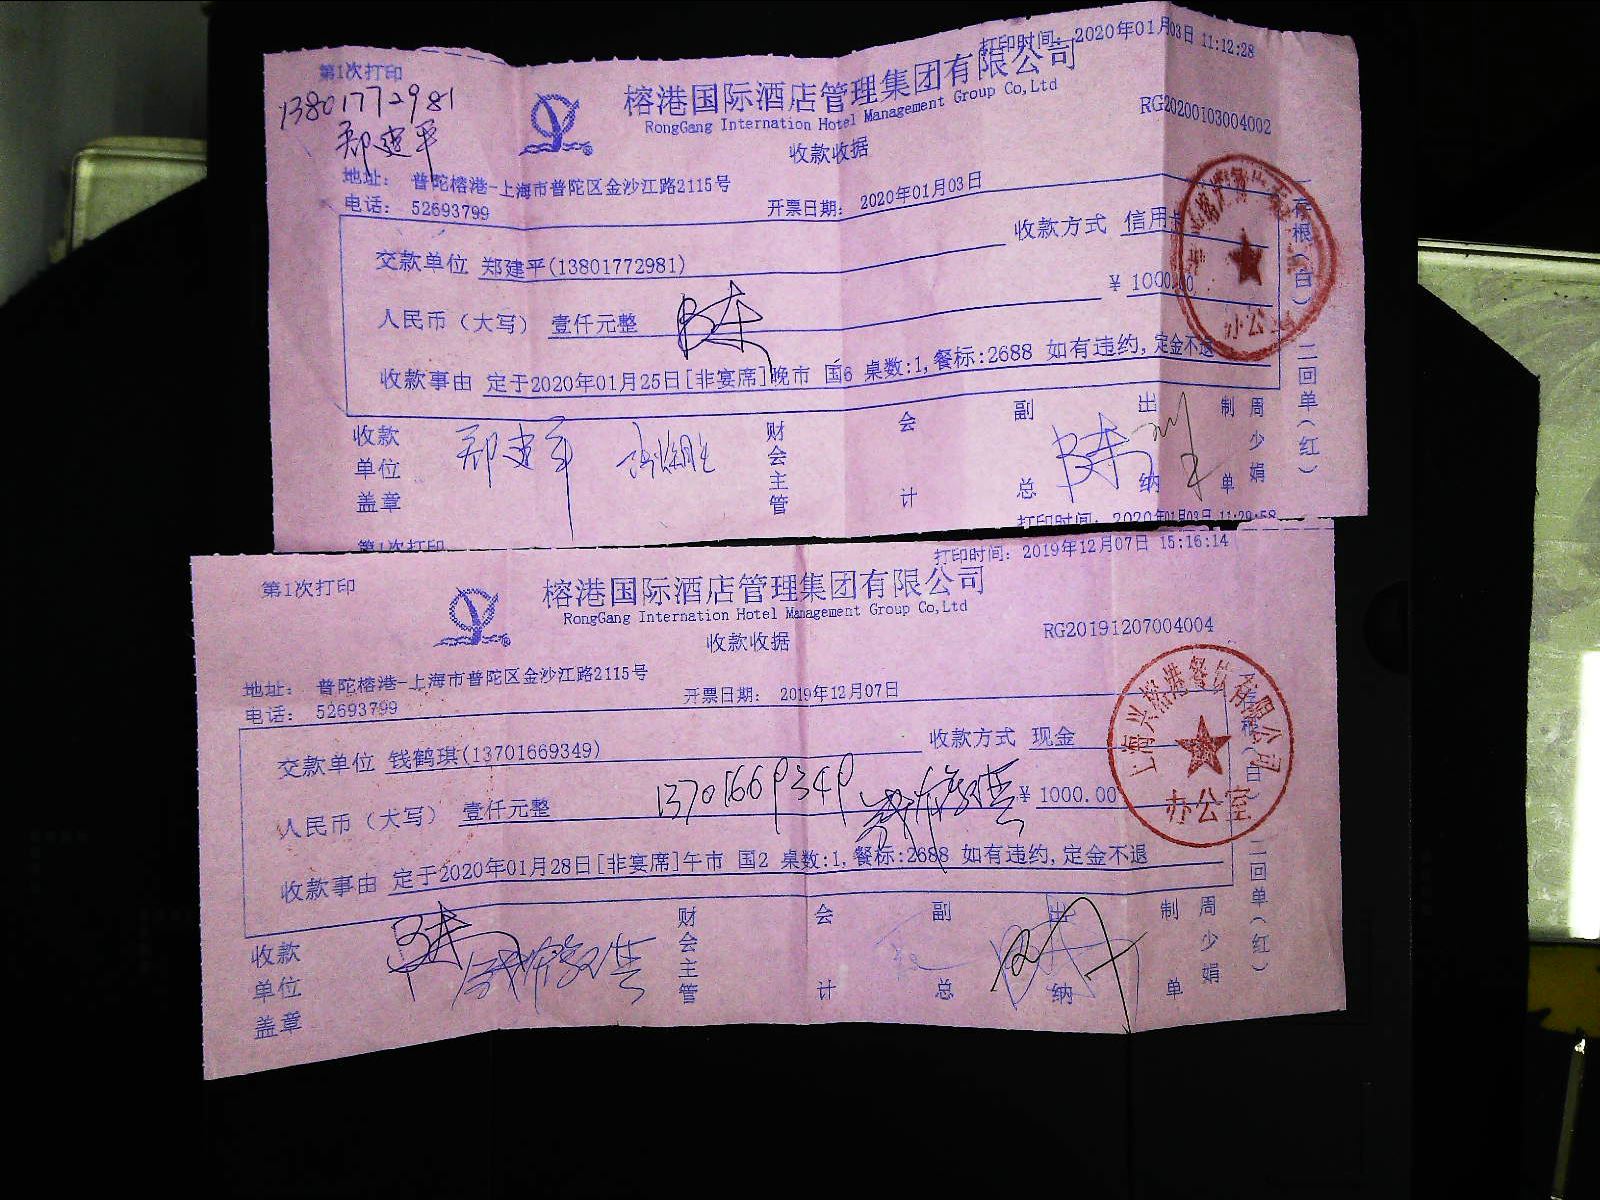 第1次打印
打印时间：2020年01月03日 11:12:28
13801772981
郑建平
榕港国际酒店管理集团有限公司
RongGang Internation Hotel Management Group Co,Ltd
收款收据
RG20200103004002
地址： 普陀榕港-上海市普陀区金沙江路2115号
电话： 52693799
开票日期： 2020年01月03日
交款单位 郑建平(13801772981)
收款方式 信用卡
人民币（大写） 壹仟元整
￥ 1000.00
收款事由 定于2020年01月25日[非宴席]晚市 国6 桌数:1,餐标:2688 如有违约,定金不退
存根(白) 二回单(红)
办公室
收款单位盖章
郑建平
财会主管
会计
副总
出纳
制单
周少娟
打印时间：2020年01月03日 11:29:58
第1次打印
第1次打印
打印时间：2019年12月07日 15:16:14
榕港国际酒店管理集团有限公司
RongGang Internation Hotel Management Group Co,Ltd
收款收据
RG20191207004004
地址： 普陀榕港-上海市普陀区金沙江路2115号
电话： 52693799
开票日期： 2019年12月07日
交款单位 钱鹤琪(13701669349)
收款方式 现金
人民币（大写） 壹仟元整
13701669349
￥ 1000.00
收款事由 定于2020年01月28日[非宴席]午市 国2 桌数:1,餐标:2688 如有违约,定金不退
存根(白) 二回单(红)
上海兴榕港餐饮有限公司
办公室
收款单位盖章
财会主管
会计
副总
出纳
制单
周少娟